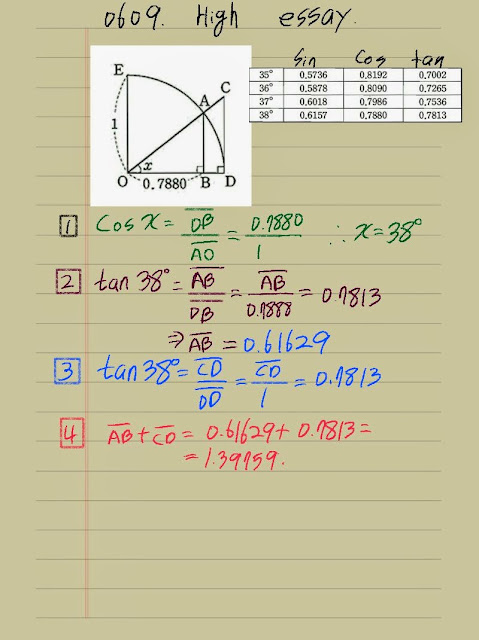 0609. High essay.
sin cos tan
35° 0.5736 0.8192 0.7002
36° 0.5878 0.8090 0.7265
37° 0.6018 0.7986 0.7536
38° 0.6157 0.7880 0.7813
E
C
A
1
x
O 0.7880 B D
1 cos x = OB/AO = 0.7880/1 ∴ x = 38°
2 tan 38° = AB/OB = AB/0.7888 = 0.7813
⇒ AB = 0.61629
3 tan 38° = CD/OD = CD/1 = 0.7813
4 AB + CD = 0.61629 + 0.7813 =
= 1.39759.